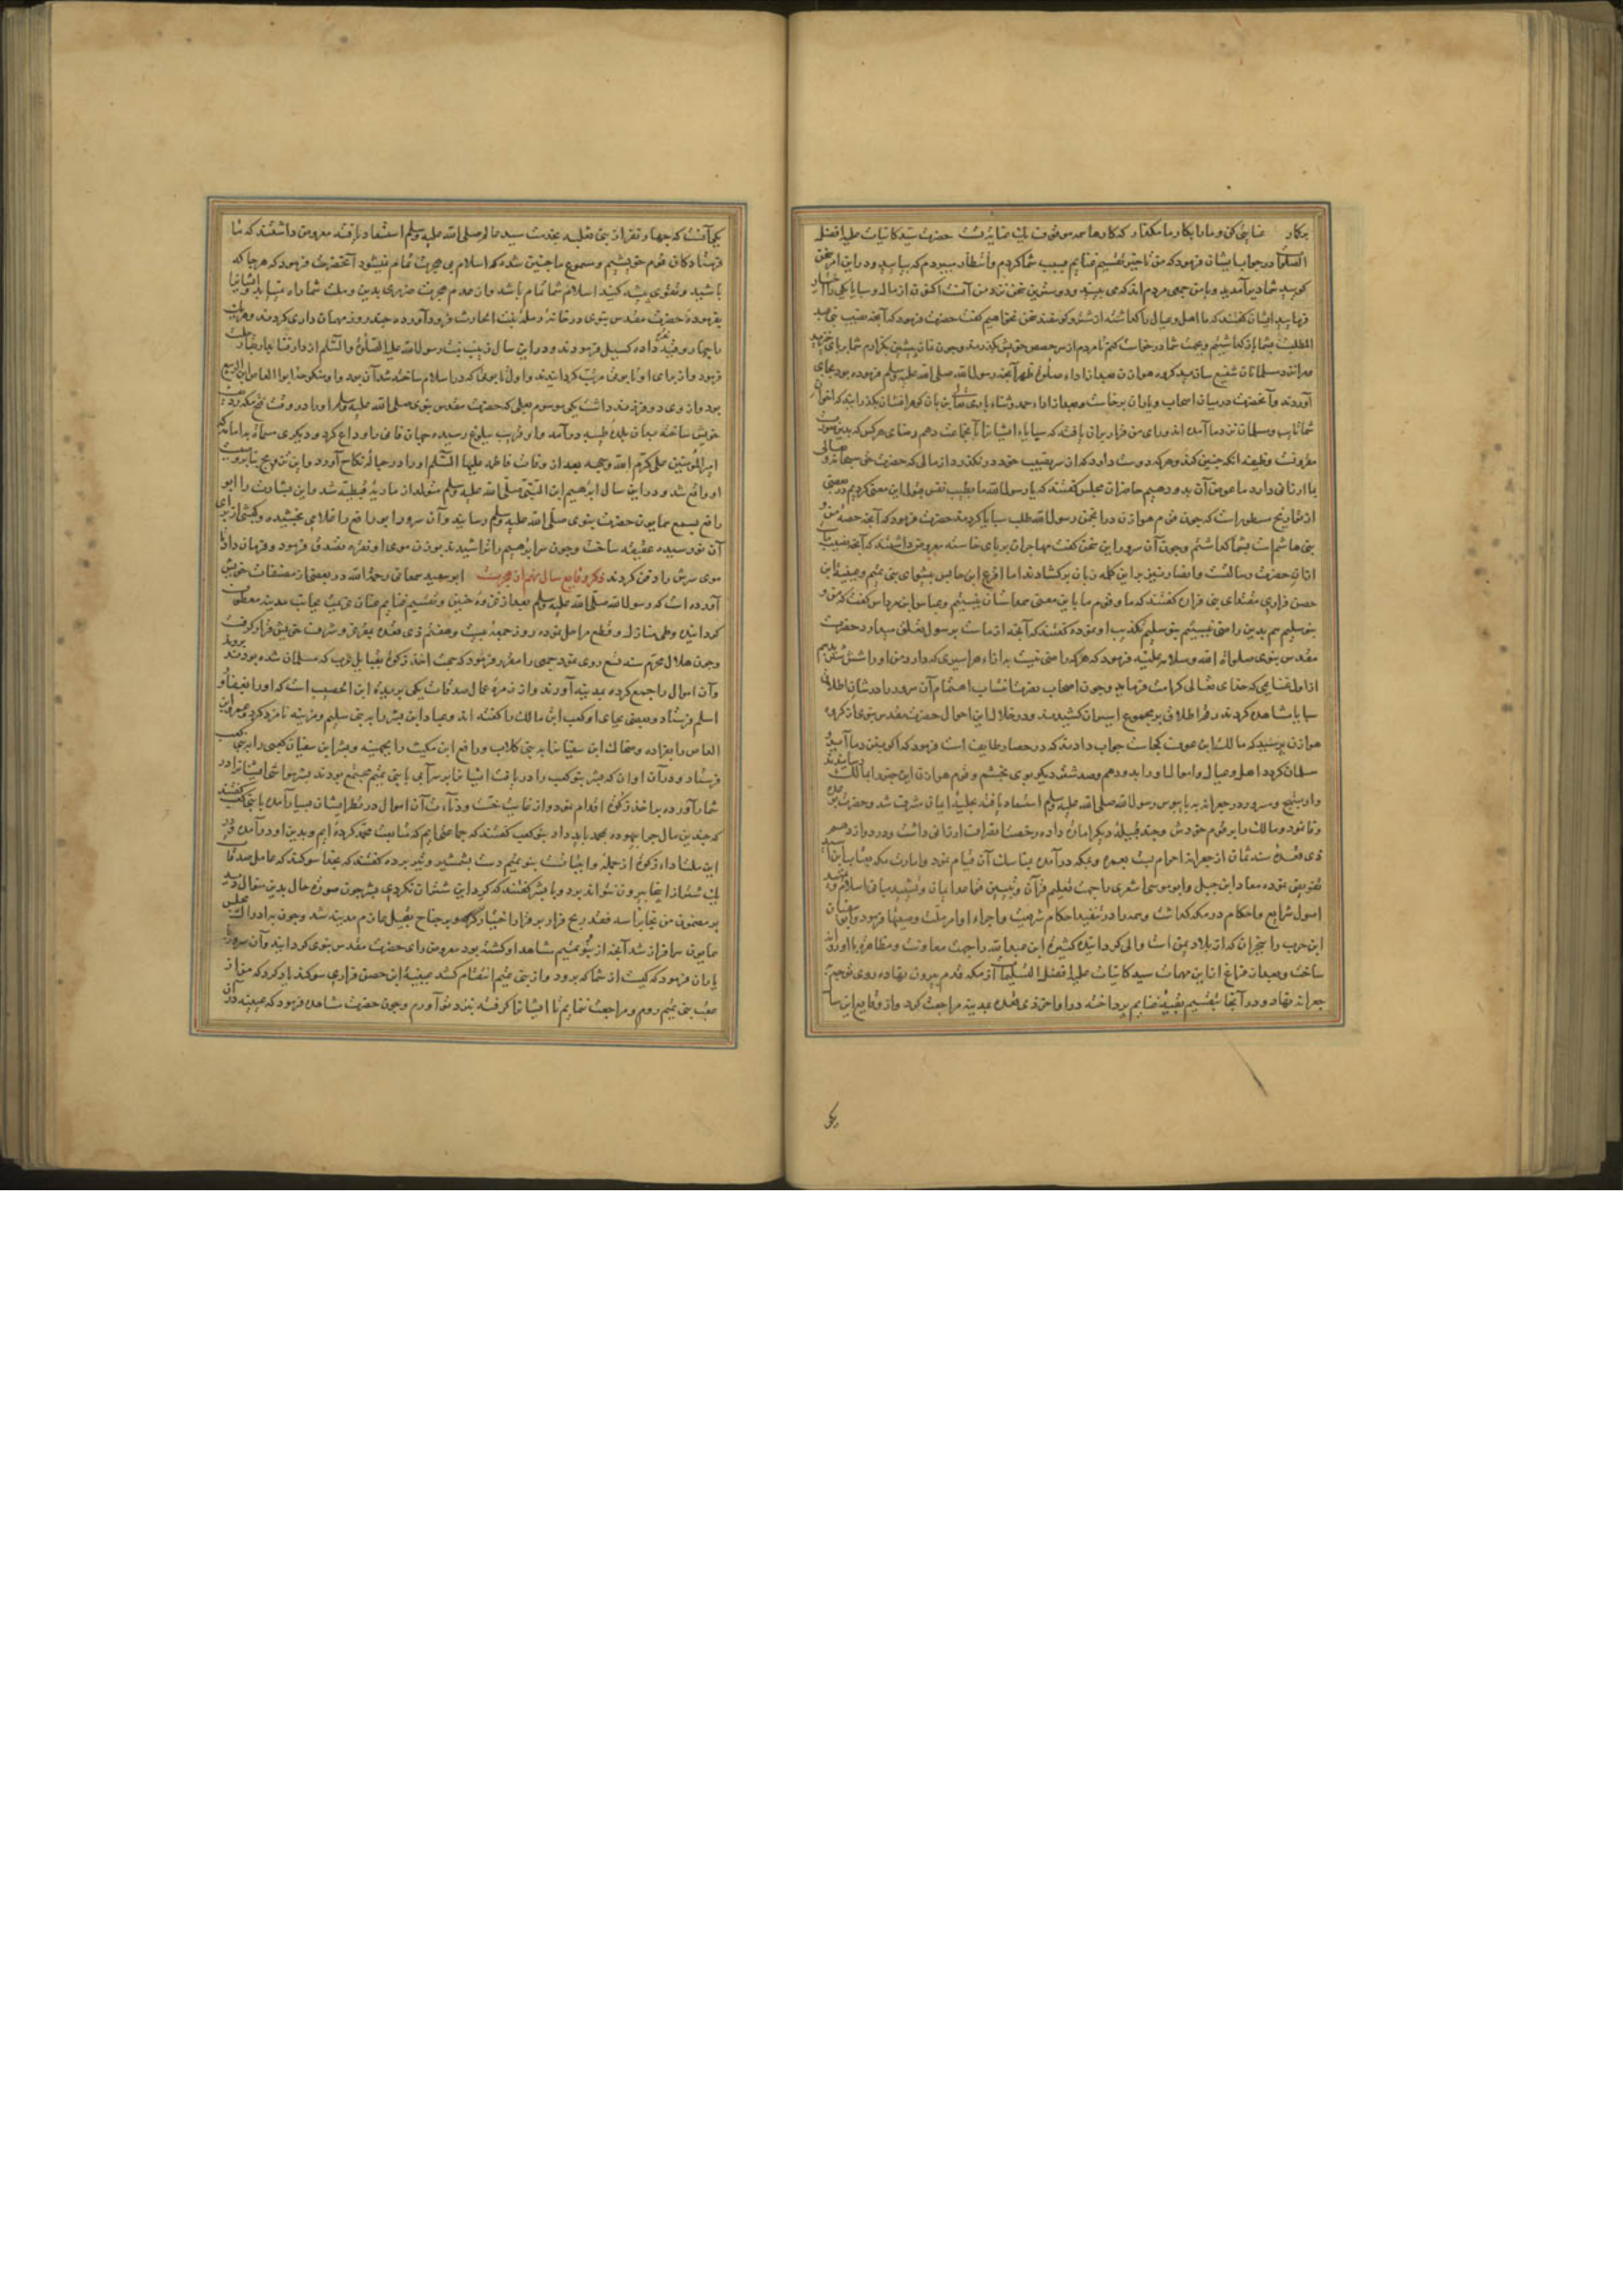 برکار عنایتی کن و ما را بکار ما مگذار که کارها همه موقوف یک عنایت تست حضرت سید کاینات علیه افضل
در جواب ایشان فرمود که من تاخیر تقسیم غنایم بسبب شما کردم و انتظار میبردم که بیایید و در این امر سخن
کویید شما دیر آمدید و با من جمعی مردم اند که می بینید و دوستترین سخن نزد من آنست اکنون از مال و سبایا یکی را اختیار
فرمایید ایشان گفتند که ما اهل و عیال را گذاشته از شتر و کوسفند سخن نخواهیم گفت حضرت فرمود که آنچه نصیب بنی عبد
المطلبست بشما باز گذاشتیم و بجهت شما درخواست کنم تا مردم از سر حصص خویش بگذرند و چون نماز پیشین بگزارم شما برپای خیزید
و مرا نزد مسلمانان شفیع سازید گروه هوازن بعد از اداء صلوة ظهر آنچه رسول الله صلی الله علیه وسلم فرموده بود بجای
آوردند و آنحضرت در میان اصحاب و یاران برخاست و بعد از اداء حمد و ثناء باری تعالی
شما تایب و مسلمان نزد ما آمده اند و رای من قرار بران یافته که سبایاء ایشانرا بآنجماعت دهم و رضای هرکس که بدین
هرکه دوست دارد که از سر نصیب خود در نگذرد از مالی که حضرت حق سبحانه و تعالی
بما ارزانی دارد ما عوض آن بدو دهیم حاضران مجلس گفتند که یا رسول الله ما بطیب نفس قبول این معنی کردیم و در بعضی
از تواریخ مسطور است که چون قوم هوازن در انجمن رسول الله طلب سبایا کردند حضرت فرمود که آنچه حصه من و
بنی هاشم است بشما گذاشتم و چون آن سرور این سخن گفت مهاجران بر پای خاسته معروض داشتند که آنچه نصیب ماست
ازان حضرت رسالتست و انصار نیز بر این کلمه زبان برکشادند اما اقرع ابن حابس پیشوای بنی تمیم و عیینة ابن
حصن فزاری مقتدای بنی فزاره گفتند که ما و قوم ما باین معنی همداستان نیستیم و عباس ابن مرداس گفت که من و
بنو سلیم هم بدین راضی نیستیم بنو سلیم تکذیب او نموده گفتند که آنچه از ماست برسول تعلق میدارد حضرت
مقدس نبوی صلوات الله و سلامه علیه فرمود که هرکه راضی نیست به ازاء هر اسیری که دارد من او را شش شتر بدهیم
از اول غنایمی که خدای تعالی کرامت فرماید و چون اصحاب نصرت انتساب اهتمام آن سرور را در شان اطلاق
سبایا مشاهده کردند رقم اطلاق بر مجموع اسیران کشیدند و در خلال این احوال حضرت مقدس نبوی از گروه
هوازن پرسید که مالک ابن عوف کجاست جواب دادند که در حصار طایف است فرمود که اگر نزد ما آید و
مسلمان گردد اهل و عیال و اموال او را بدو دهم و صد شتر دیگر بوی بخشم و قوم هوازن این خبر را بمالک رسانیدند
و او بهیچ و سرور در جعرانه به پابوس رسول الله صلی الله علیه وسلم استسعاد یافته بحلیه ایمان مشرف شد و حضرت بوعده
وفا نمود و مالک را بر قوم خودش و چند قبیله دیگر امارت داده رخصت انصراف ارزانی داشت و در دوازدهم
ذی قعده سنه ثمان از جعرانه احرام بست بعمره و بمکه درآمده بمناسک آن قیام نمود و امارت مکه بعتاب ابن اسید
تفویض نموده معاذ ابن جبل و ابو موسی اشعری را جهت تعلیم قرآن و تبیین قواعد ایمان و تشیید مبانی اسلام و تمهید
اصول شرایع و احکام در مکه گذاشت و عهده در تنفیذ احکام شریعت و اجراء اوامر ملت وصیتها فرمود و ابو سفیان
ابن حرب را بنجران که از بلاد یمن است والی گردانیده کثیرة ابن عبد الله را جهت معاونت و مظاهره با او روانه
ساخت و بعد از فراغ از این مهمات سید کاینات علیه افضل التسلیمات از مکه قدم بیرون نهاده روی توجه
جعرانه نهاد و در آنجا بتقسیم بقیه غنایم پرداخته در اواخر ذی قعده بمدینه مراجعت کرد و از وقایع این سال
یکی
یکی آنست که چهار نفر از بنی ثعلبه بخدمت سید عالم صلی الله علیه وسلم استسعاد یافته معروض داشتند که ما
فرستادگان قوم خویشیم و مسموع ما چنین شده که اسلام بی هجرت تمام نمیشود آنحضرت فرمود که هرجا که
باشید و تقوی پیشه کنید اسلام شما تمام باشد و از عدم هجرت ضرری بدین و ملت شما راه نیابد ایشانرا
بفرموده حضرت مقدس نبوی در خانه رمله بنت الحارث فرود آورده چند روز مهمان داری کردند و هریک
را چهار وقیه نقره داده کسیل فرمودند و در این سال زینب بنت رسول الله علیه الصلوة والسلام از دار فنا بدار بقا رحلت
فرمود و از برای او تابوتی مرتب گردانیدند و اول تابوتی که در اسلام ساخته شد آن بود و او منکوحه ابو العاص ابن الربیع
بود و از وی دو فرزند داشت یکی موسوم بعلی که حضرت مقدس نبوی صلی الله علیه وسلم او را در وقت فتح مکه ردیف
خویش ساخته بدان بلده طیبه درآمد و او قریب ببلوغ رسیده جهان فانی را وداع کرد و دیگری مسماة به امامه که
امیر المؤمنین علی کرم الله وجهه بعد از وفات فاطمه علیها السلام او را در حباله نکاح آورد و این تزویج بنابر وصیت
او واقع شد و در این سال ابراهیم ابن النبی صلی الله علیه وسلم متولد از ماریه قبطیه شد و این بشارت را ابو
رافع بسمع همایون حضرت نبوی صلی الله علیه وسلم رسانید و آن سرور ابو رافع را غلامی بخشیده و کبشی از برای
آن نو رسیده عقیقه ساخت و چون سر ابراهیم را تراشیدند بوزن موی او نقره تصدق فرمود و فرمان داد تا
موی سرش را دفن کردند ذکر وقایع سال نهم از هجرت ابو سعید سمعانی رحمة الله در بعضی از مصنفات خویش
آورده است که رسول الله صلی الله علیه وسلم بعد از غزوه حنین و تقسیم غنایم عنان عزیمت بجانب مدینه معطوف
گردانیده و طی منازل و قطع مراحل نموده روز جمعه بیست و هفتم ذی قعده بمقر عز و شرف خویش قرار گرفت
و چون هلال محرم سنه تسع روی نمود جمعی را مقرر فرمود که جهت اخذ زکوة بقبایل عرب که مسلمان شده بودند بروند
و آن اموال را جمع کرده بمدینه آورند و از زمره عمال صدقات یکی بریدة ابن الحصیب است که او را بغفار و
اسلم فرستاد و بعضی بجای او کعب ابن مالک را گفته اند و عباد ابن بشر را به بنی سلیم و مزینه نامزد کرد و عمرو ابن
العاص را بفزاره و ضحاک ابن سفیانرا به بنی کلاب و رافع ابن مکیث را بجهینه و بشر ابن سفیان کعبی را به بنی کعب
فرستاد و در آن اوان که بشر بنو کعب را دریافت ایشانرا بر سر آبی با بنی تمیم مجتمع بودند بشر مواشی ایشانرا در
شمار آورده به اخذ زکوة اقدام نمود و از غایت خست و دناءت آن اموال در نظر ایشان بسیار آمده با بنی کعب گفتند
که چندین مال چرا بیهوده بمحمد باید داد بنو کعب گفتند که جماعتی ایم که متابعت محمد کرده ایم و بدین او درآمده و در
این ملت اداء زکوة از جمله واجباتست بنو تمیم دست بشمشیر و تیر برده گفتند که بخدا سوکند که عامل صدقات
یک شتر از اینجا بیرون نتواند برد و با بشر گفتند که گرد این شتران نگردی بشر چون صورت حال بدین منوال دید
بر مضمون من نجا براسه فقد ربح قرار بر فرار اختیار کرده و بر جناح تعجیل عازم مدینه شد و چون به ادراک مجلس
همایون سرافراز شد آنچه از بنو تمیم مشاهد او گشته بود معروض رای حضرت مقدس نبوی گردانید و آن سرور با
یاران فرمود که کیست از شما که برود و از بنی تمیم انتقام کشد عیینة ابن حصن فزاری سوکند یاد کرد که من از
عقب بنی تمیم روم و مراجعت ننمایم تا ایشانرا گرفته بنزد تو آورم و چون حضرت مشاهده فرمود که عیینه در آن